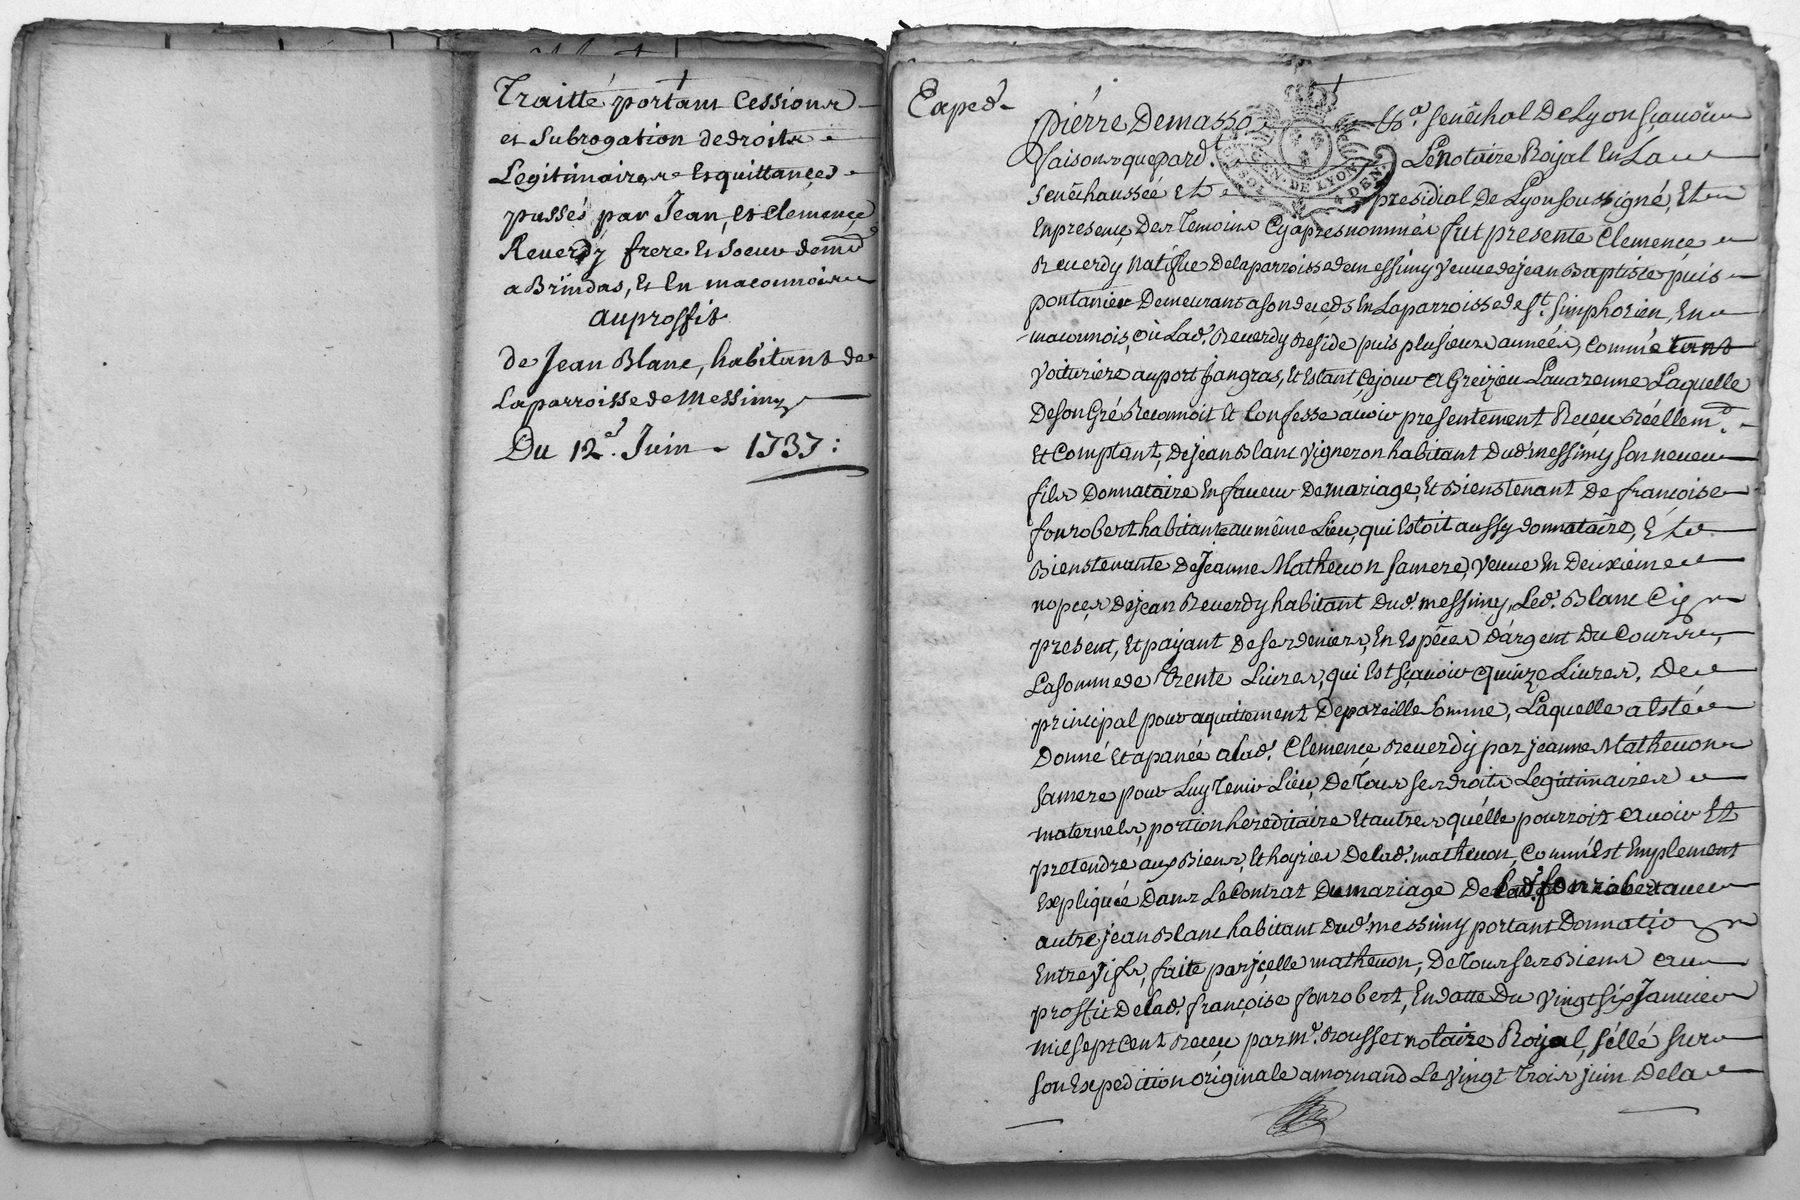 Traitté portant Cessions
et Subrogation de droits
Legitimaires Et quittances
passés par Jean, et Clemence
Reverdy frere Et Soeur dem.t
a Brindas, Et En maconnois
au proffit
de Jean Blanc, habitant de
La parroisse de Messimy
Du 12.e Juin 1737 :
Exped.
Pierre Demasso S.r Senêchal De Lyon Sçavoir
faisons que pard.t Le Notaire Royal En La
Senêchausséé Et presidial De Lyon Soussigné, Et
En presence Des Temoins Cy apres nommés fut presente Clemence
Reverdy Natifve De la parroisse de messimy veuve de jean Baptiste puis
pontanier Demeurant a son decéds En La parroisse de S.t Simphorien, En
maconnois, où Lad. Reverdy Reside puis plusieurs années, comme
voituriere au port jangras, Et Estant Cejour A Greizieu Lavarenne Laquelle
De son Gré Reconnoit Et Confesse avoir presentement Receu Réellem.t
Et Comptant, De jean Blanc vigneron habitant Dud. messimy son neveu
fils Donnataire En faveur De mariage, Et Bienstenant de françoise
fonrobert habitante au même Lieu, qui Estoit aussy donnataire, Et
Bienstenante De Jeanne Mathevon sa mere, veuve En Deuxieme
nopces De jean Reverdy habitant Dud. messimy, Led. Blanc Cy
present, Et payant De ses deniers, En Espêces D'argent Du Cours,
La somme de Trente Livres, qui Est sçavoir Quinze Livres, De
principal pour aquittement De pareille somme, Laquelle a Esté
Donné Et apanée a Lad. Clemence Reverdy par jeanne Mathevon
sa mere pour Luy Tenir Lieu, De Tous ses droits Legitimaires
maternels, portion hereditaire Et autres qu'élle pourroit avoir Et
pretendre aux Biens, Et hoyries De lad. mathevon, Comm'Est Emplement
Expliquée Dans Le Contrat De mariage De Lad. fonrobert avec
autre jean Blanc habitant Dud. messimy portant Donnation
Entrevifs, faite par jcelle mathevon, De Tous ses Biens au
proffit De lad. françoise fonrobert, En datte Du vingt six Janvier
mil sept Cent Receu par M.e Rousset notaire Royal, séllé sur
son Expedition originale a mornand Le vingt Trois juin De la